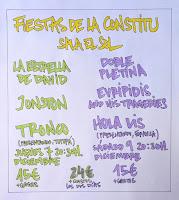 FIESTAS DE LA CONSTITU
SALA EL SOL
LA ESTRELLA
DE DAVID
JONSTON
TRONCO
JUEVES 7 20:30H.
DICIEMBRE
15€
+GASTOS
DOBLE
PLETINA
EVRIPIDIS
AND HIS TRAGEDIES
HOLA VIS
SÁBADO 9 20:30H.
DICIEMBRE
15€
+GASTOS
24€
+GASTOS
LOS DOS DÍAS